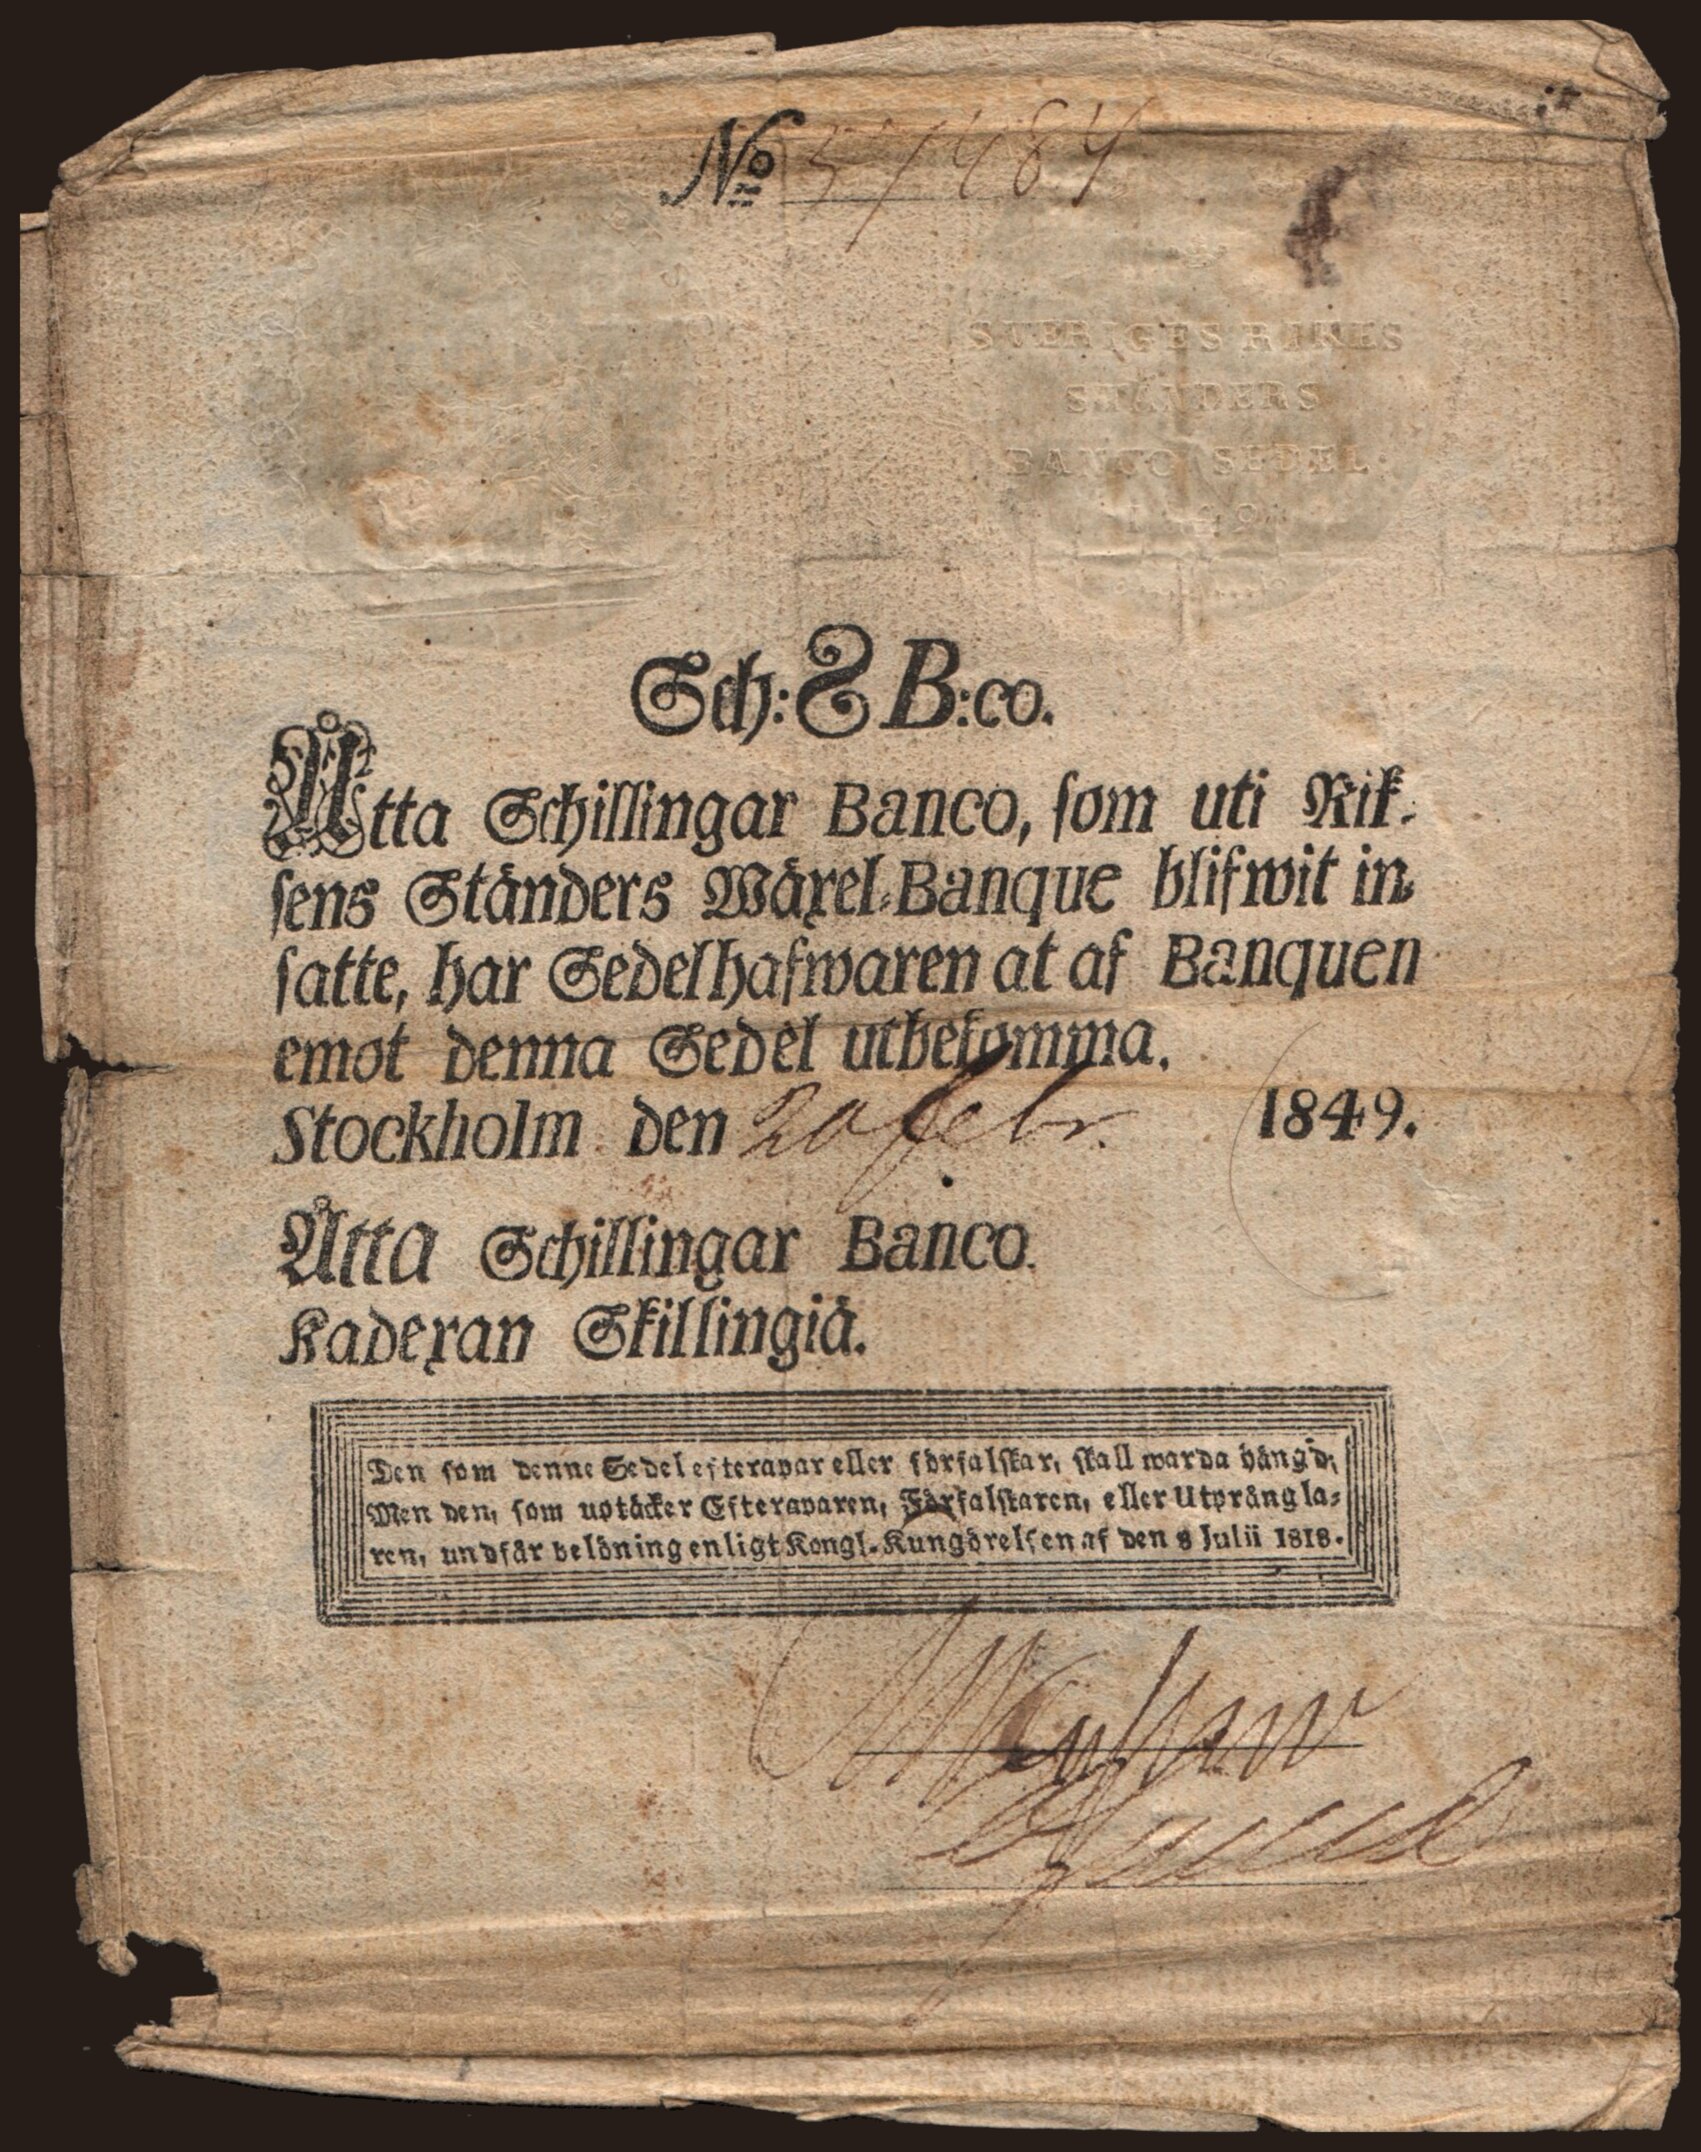 No 57484
SVERIGES RIKES
STÄNDERS
BANCO SEDEL
Sch: 8 B:co.
Åtta Schillingar Banco, som uti Rik-
sens Ständers Wäxel-Banque blifwit in-
satte, har Sedelhafwaren at af Banquen
emot denna Sedel utbekomma.
Stockholm den 20 Febr. 1849.
Åtta Schillingar Banco.
Kadexan Skillingiä.
Den som denne Sedel efterapar eller förfalskar, skall warda hängd;
Men den, som uptäcker Efteraparen, Förfalskaren, eller Utprångla-
ren, undfår belöning enligt Kongl. Kungörelsen af den 8 Julii 1818.